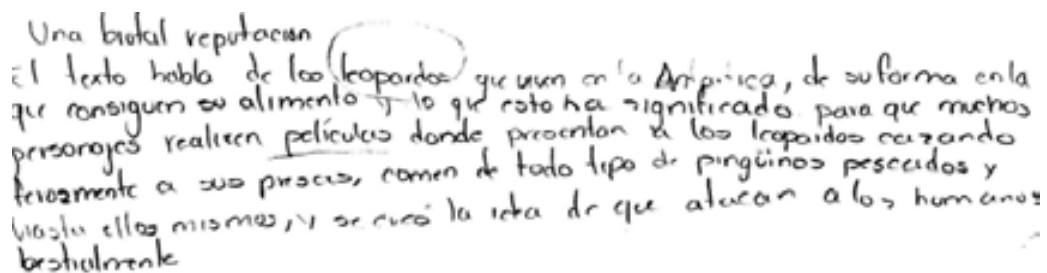 Una brutal reputacion
El texto habla de los leopardos que viven en la Antártica, de su forma en la
que consiguen su alimento y lo que esto ha significado para que muchos
personajes realicen películas donde presentan a los leopardos cazando
ferozmente a sus presas, comen de todo tipo de pingüinos pescados y
hasta ellos mismos, y se creó la idea de que atacan a los humanos
bestialmente